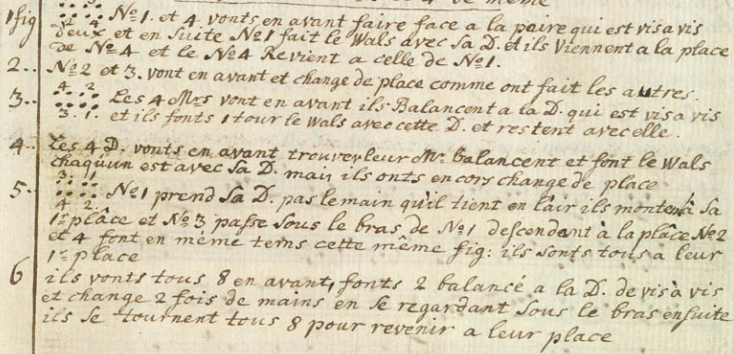 de même
1 fig No 1. et 4 vonts en avant faire face a la paire qui est vis a vis
deux et en Suite No 1 fait le Wals avec Sa D. et ils Viennent a la place
de No 4 et le No 4 Revient a celle de No 1.
2.. No 2 et 3. vont en avant et change de place comme ont fait les autres.
4 2
3.. Les 4 Mrs vont en avant ils Balancent a la D. qui est vis a vis
3. 1. et ils fonts 1 tour le Wals avec cette D. et restent avec elle.
4.. Les 4 D. vonts en avant trouver leur Mr. balancent et font le Wals
chaqu'un est avec Sa D. mais ils onts en cors change de place
3. 1
5.. No 1 prend Sa D. pas le main qu'il tient en l'air ils montent à Sa
4 2.
1r plâce et No 3 passe Sous le bras de No 1 descendent a la plâce No 2
et 4 font en même tems cette même fig: ils sonts tous a leur
1r place
6 ils vonts tous 8 en avant, fonts 2 balancé a la D. de vis à vis
et change 2 fois de mains en Se regardant Sous le bras ensuite
ils Se tournent tous 8 pour revenir a leur place